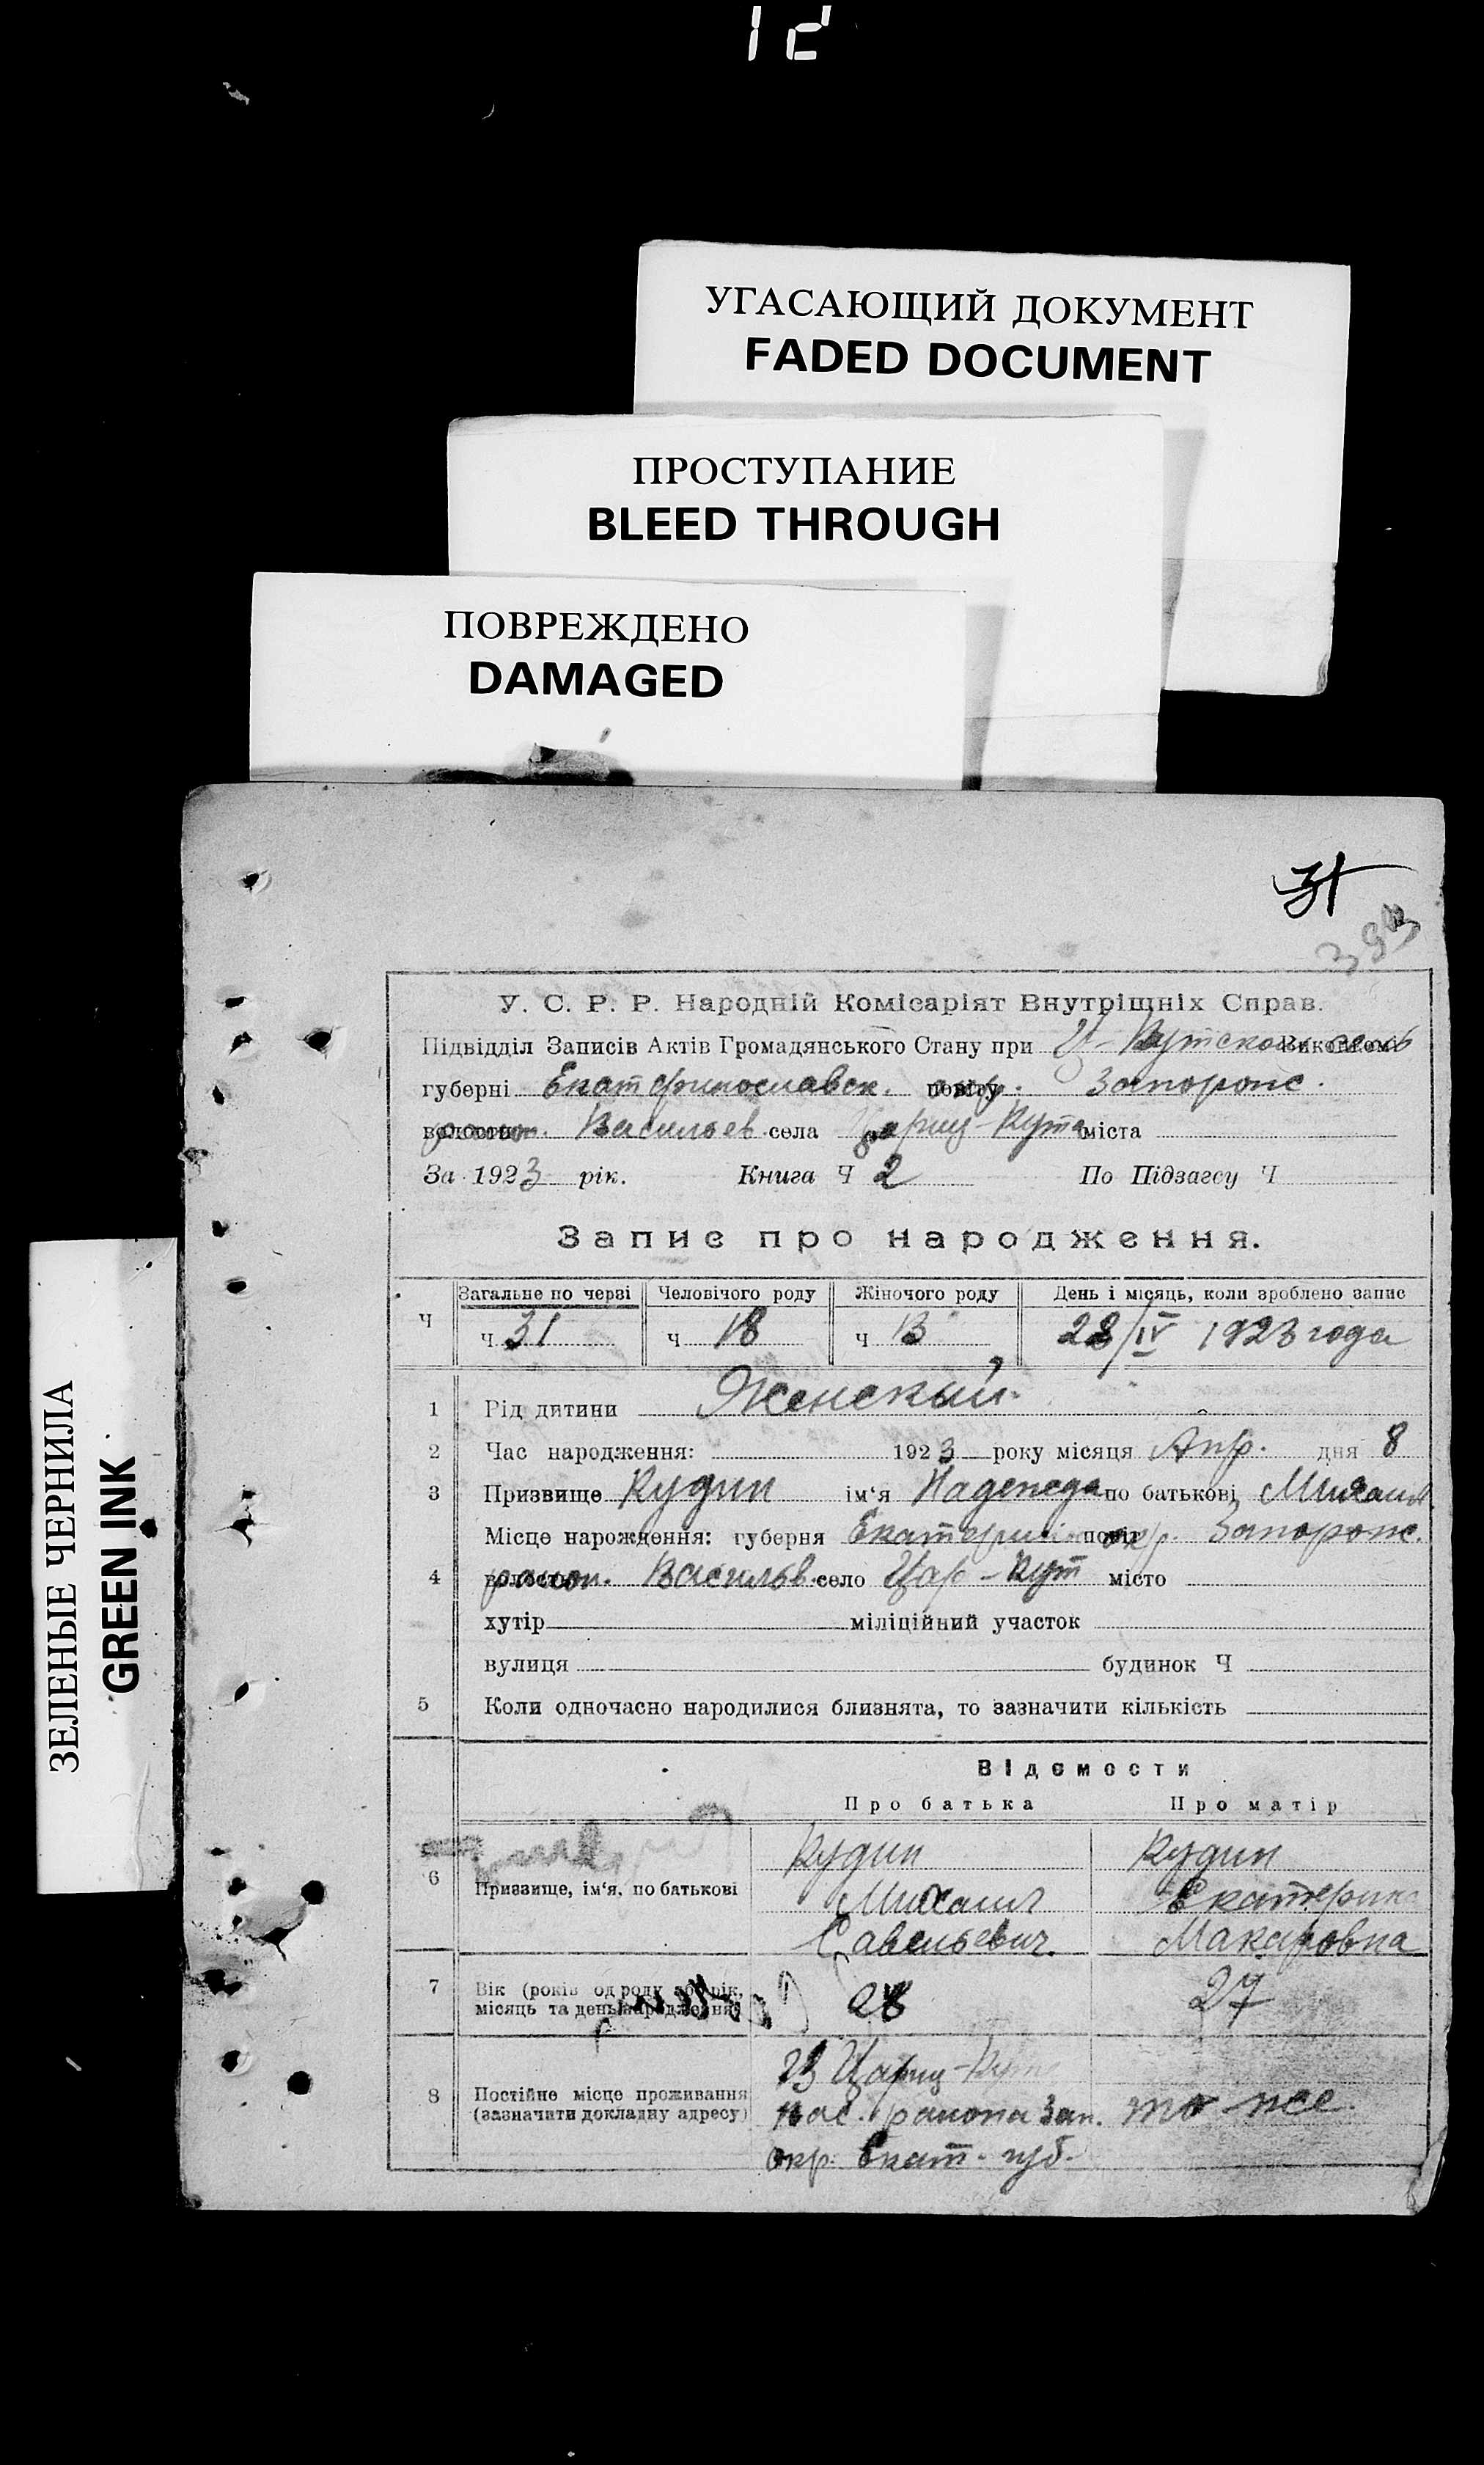 12
УГАСАЮЩИЙ ДОКУМЕНТ
FADED DOCUMENT
ПРОСТУПАНИЕ
BLEED THROUGH
ПОВРЕЖДЕНО
DAMAGED
ЗЕЛЕНЫЕ ЧЕРНИЛА
GREEN INK
31
У. С. Р. Р. Народній Комісаріят Внутрішніх Справ.
Підвідділ Записів Актів Громадянського Стану при Ц-Кутском
губерні Екатеринославск. повіту окр. Запорож.
волости район. Васильев. села Цариц-Кута міста
За 1923 рік. Книга Ч 2 По Підзагсу Ч
Запис про народження.
Загальне по черзі Человічого роду Жіночого роду День і місяць, коли зроблено запис
Ч ч 31 ч 18 ч 13 28/IV 1923 года
1 Рід дитини Женский.
2 Час народження: 1923 року місяця Апр. дня 8
3 Призвище Кудин ім‘я Надежда по батькові Михаил
Місце народження: губерня Екатерин повіт окр. Запорож.
4 волость район. Васильв. село Цар-Кут місто
хутір міліційний участок
вулиця будинок Ч
5 Коли одночасно народилися близнята, то зазначити кількість
Відомости
Про батька Про матір
Кудин Кудин
6 Призвище, ім‘я, по батькові Михаил Екатерина
Савельевич. Макаровна
7 Вік (років од роду або рік, 28 27
місяць та день народження)
В Цариц-Куте
8 Постійне місце проживання Вас. района Зап. то же.
(зазначити докладну адресу)
окр. Екат. губ.